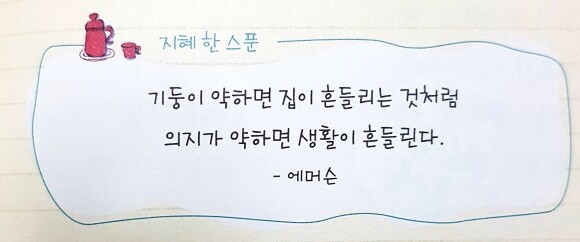 지혜 한 스푼
기둥이 약하면 집이 흔들리는 것처럼
의지가 약하면 생활이 흔들린다.
- 에머슨